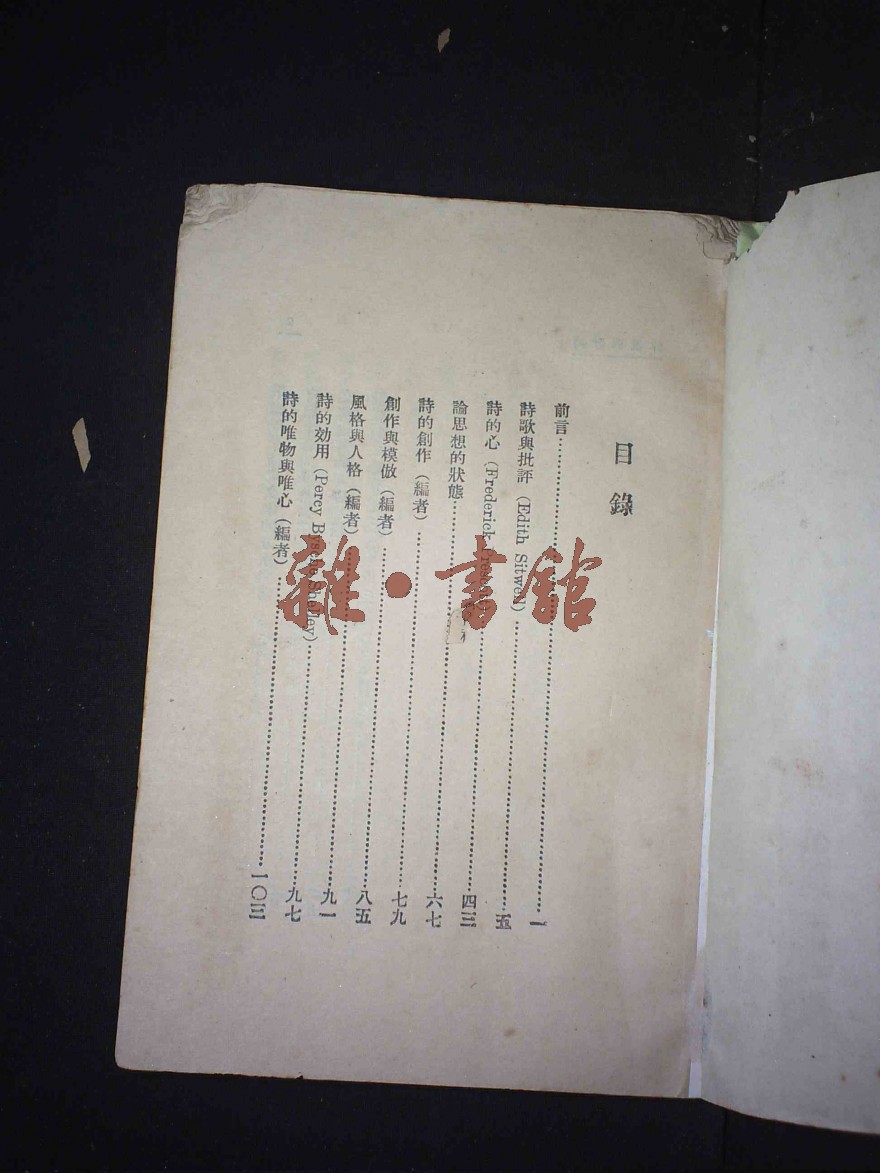 目錄
前言……一
詩歌與批評（Edith Sitwell）……五
詩的心（Frederick ……四三
論思想的狀態……六七
詩的創作（編者）……七九
創作與模倣（編者）……八五
風格與人格（編者）……九一
詩的効用（Percy Bysche Shelley）……九七
詩的唯物與唯心（編者）……一〇三
雜·書館